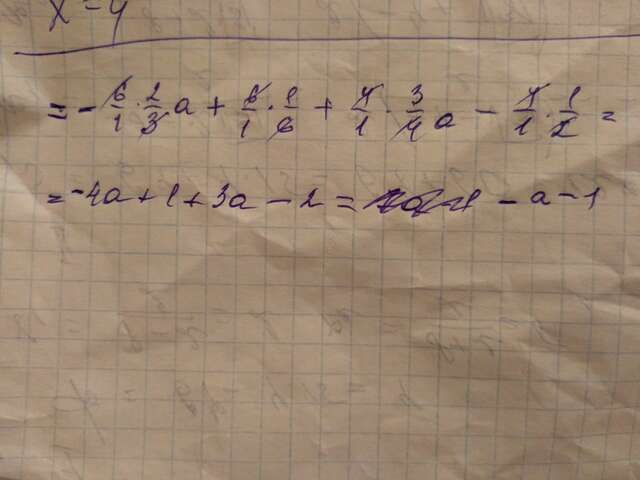 x = 4
= - 6/1 · 2/3 a + 6/1 · 1/6 + 4/1 · 3/4 a - 4/1 · 1/2 =
= -4a + 1 + 3a - 2 = - a - 1